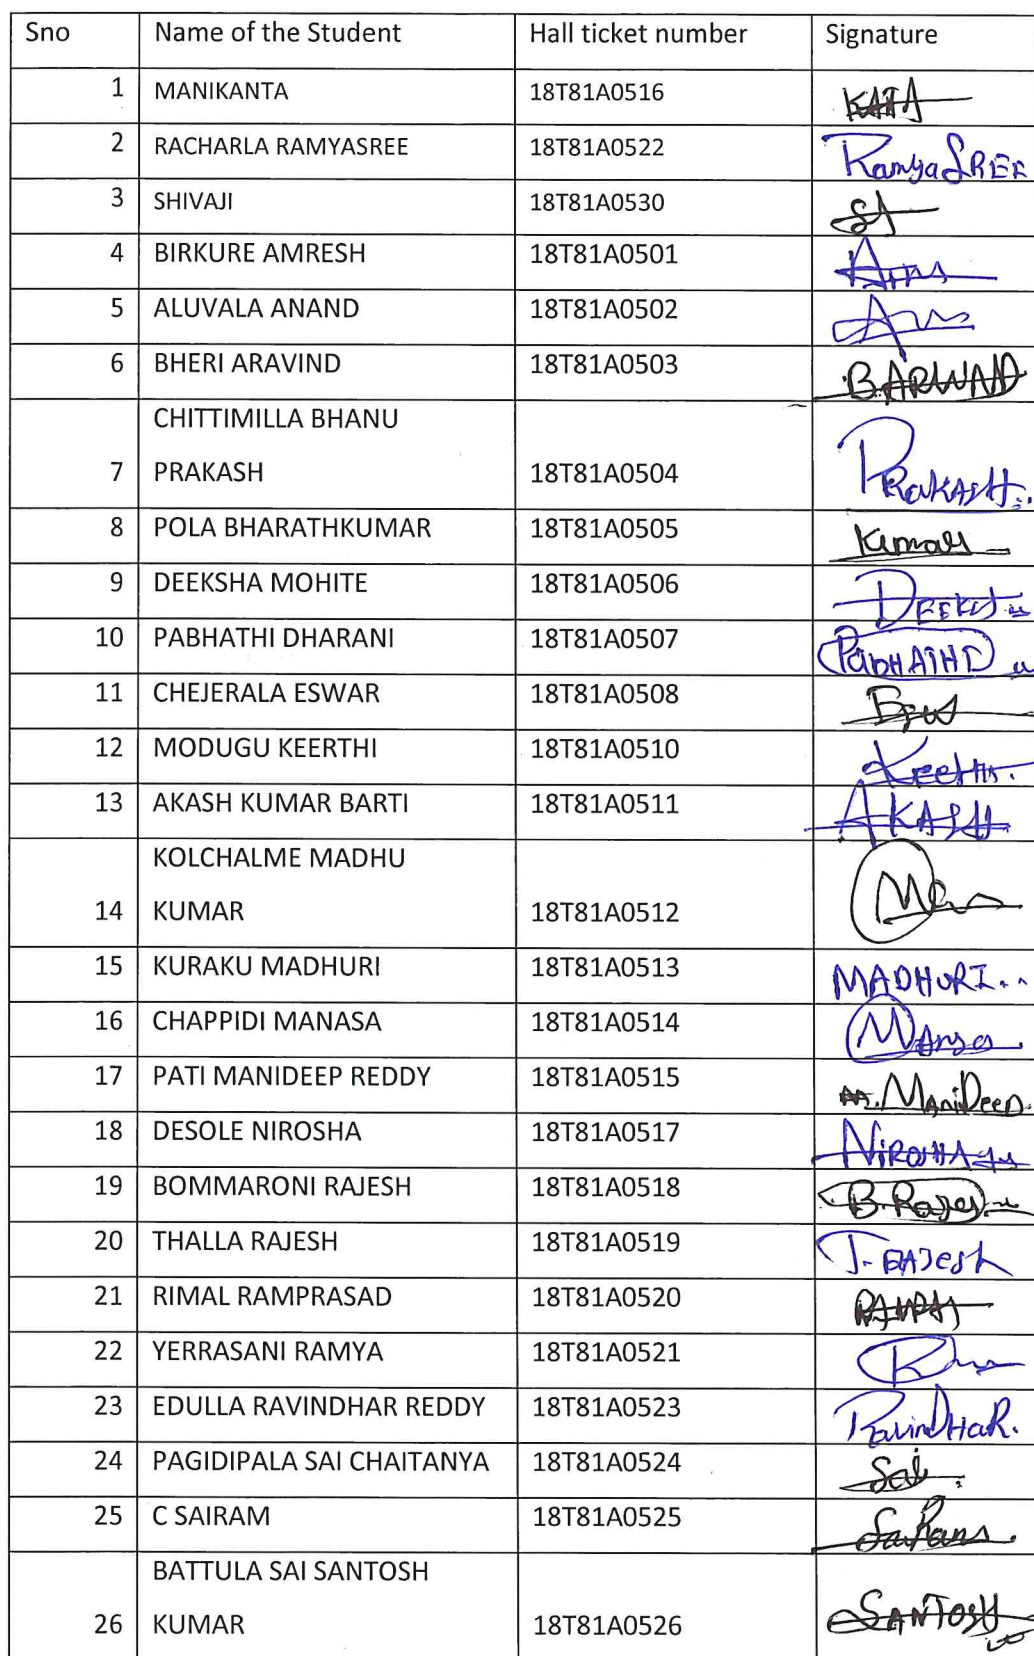 Sno Name of the Student Hall ticket number Signature
1 MANIKANTA 18T81A0516 KATA
2 RACHARLA RAMYASREE 18T81A0522 RamyaSREE
3 SHIVAJI 18T81A0530
4 BIRKURE AMRESH 18T81A0501
5 ALUVALA ANAND 18T81A0502
6 BHERI ARAVIND 18T81A0503
CHITTIMILLA BHANU
7 PRAKASH 18T81A0504 PRAKASH..
8 POLA BHARATHKUMAR 18T81A0505 Kumar
9 DEEKSHA MOHITE 18T81A0506
10 PABHATHI DHARANI 18T81A0507 PABHATHI
11 CHEJERALA ESWAR 18T81A0508
12 MODUGU KEERTHI 18T81A0510
13 AKASH KUMAR BARTI 18T81A0511 AKASH
KOLCHALME MADHU
14 KUMAR 18T81A0512
15 KURAKU MADHURI 18T81A0513 MADHURI..
16 CHAPPIDI MANASA 18T81A0514
17 PATI MANIDEEP REDDY 18T81A0515 ManiDeep.
18 DESOLE NIROSHA 18T81A0517 NIROSHA
19 BOMMARONI RAJESH 18T81A0518
20 THALLA RAJESH 18T81A0519 T. RAJesh
21 RIMAL RAMPRASAD 18T81A0520
22 YERRASANI RAMYA 18T81A0521
23 EDULLA RAVINDHAR REDDY 18T81A0523 RavinDHaR.
24 PAGIDIPALA SAI CHAITANYA 18T81A0524 Sai.
25 C SAIRAM 18T81A0525
BATTULA SAI SANTOSH
26 KUMAR 18T81A0526 SANTOSH